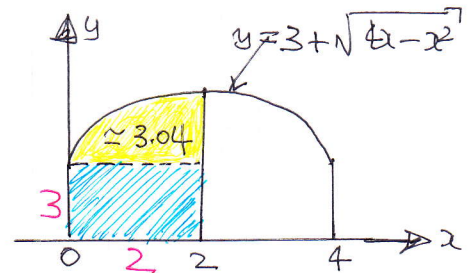 y
y = 3 + √4x - x²
≃ 3.04
3
0 2 2 4 x